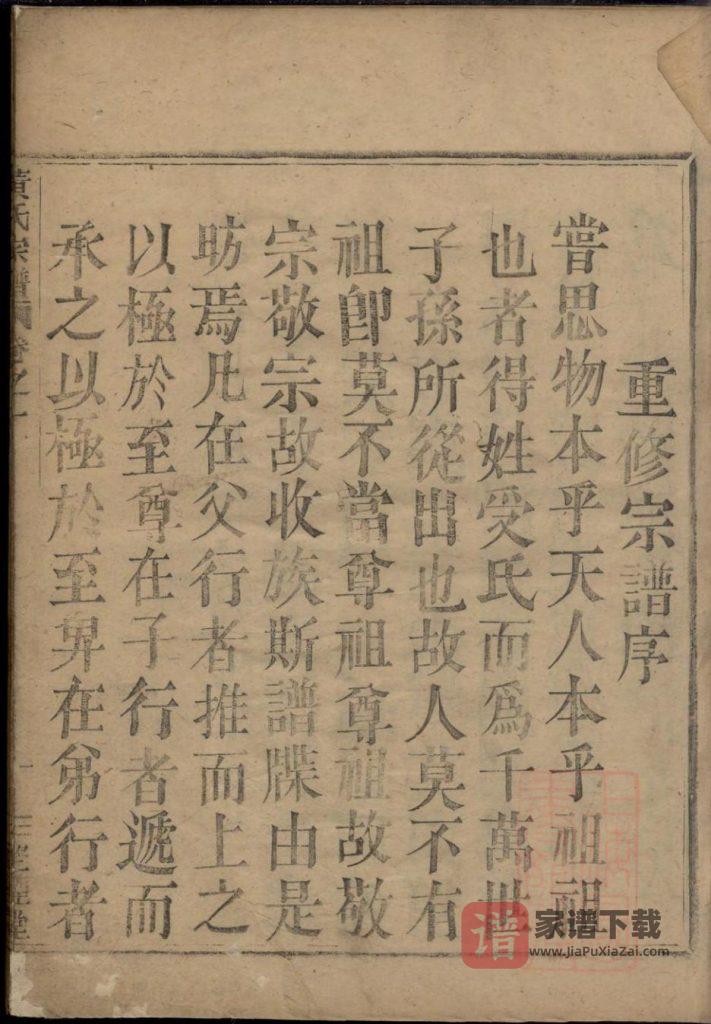 重修宗譜序
嘗思物本乎天人本乎祖祖
也者得姓受氏而爲千萬世
子孫所從出也故人莫不有
祖卽莫不當尊祖尊祖故敬
宗敬宗故收族斯譜牒由是
昉焉凡在父行者推而上之
以極於至尊在子行者遞而
承之以極於至卑在弟行者
黃氏宗譜 卷之一
一
堂
谱
家谱下载
www.JiaPuXiaZai.com